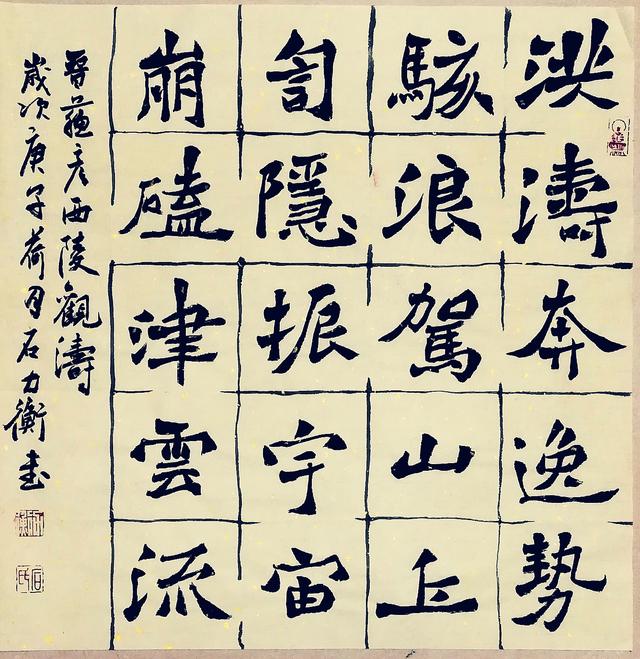 洪濤奔逸勢
駭浪駕山丘
訇隱振宇宙
崩磕津雲流
晉蘓彥西陵觀濤
歲次庚子荷月石力衡書